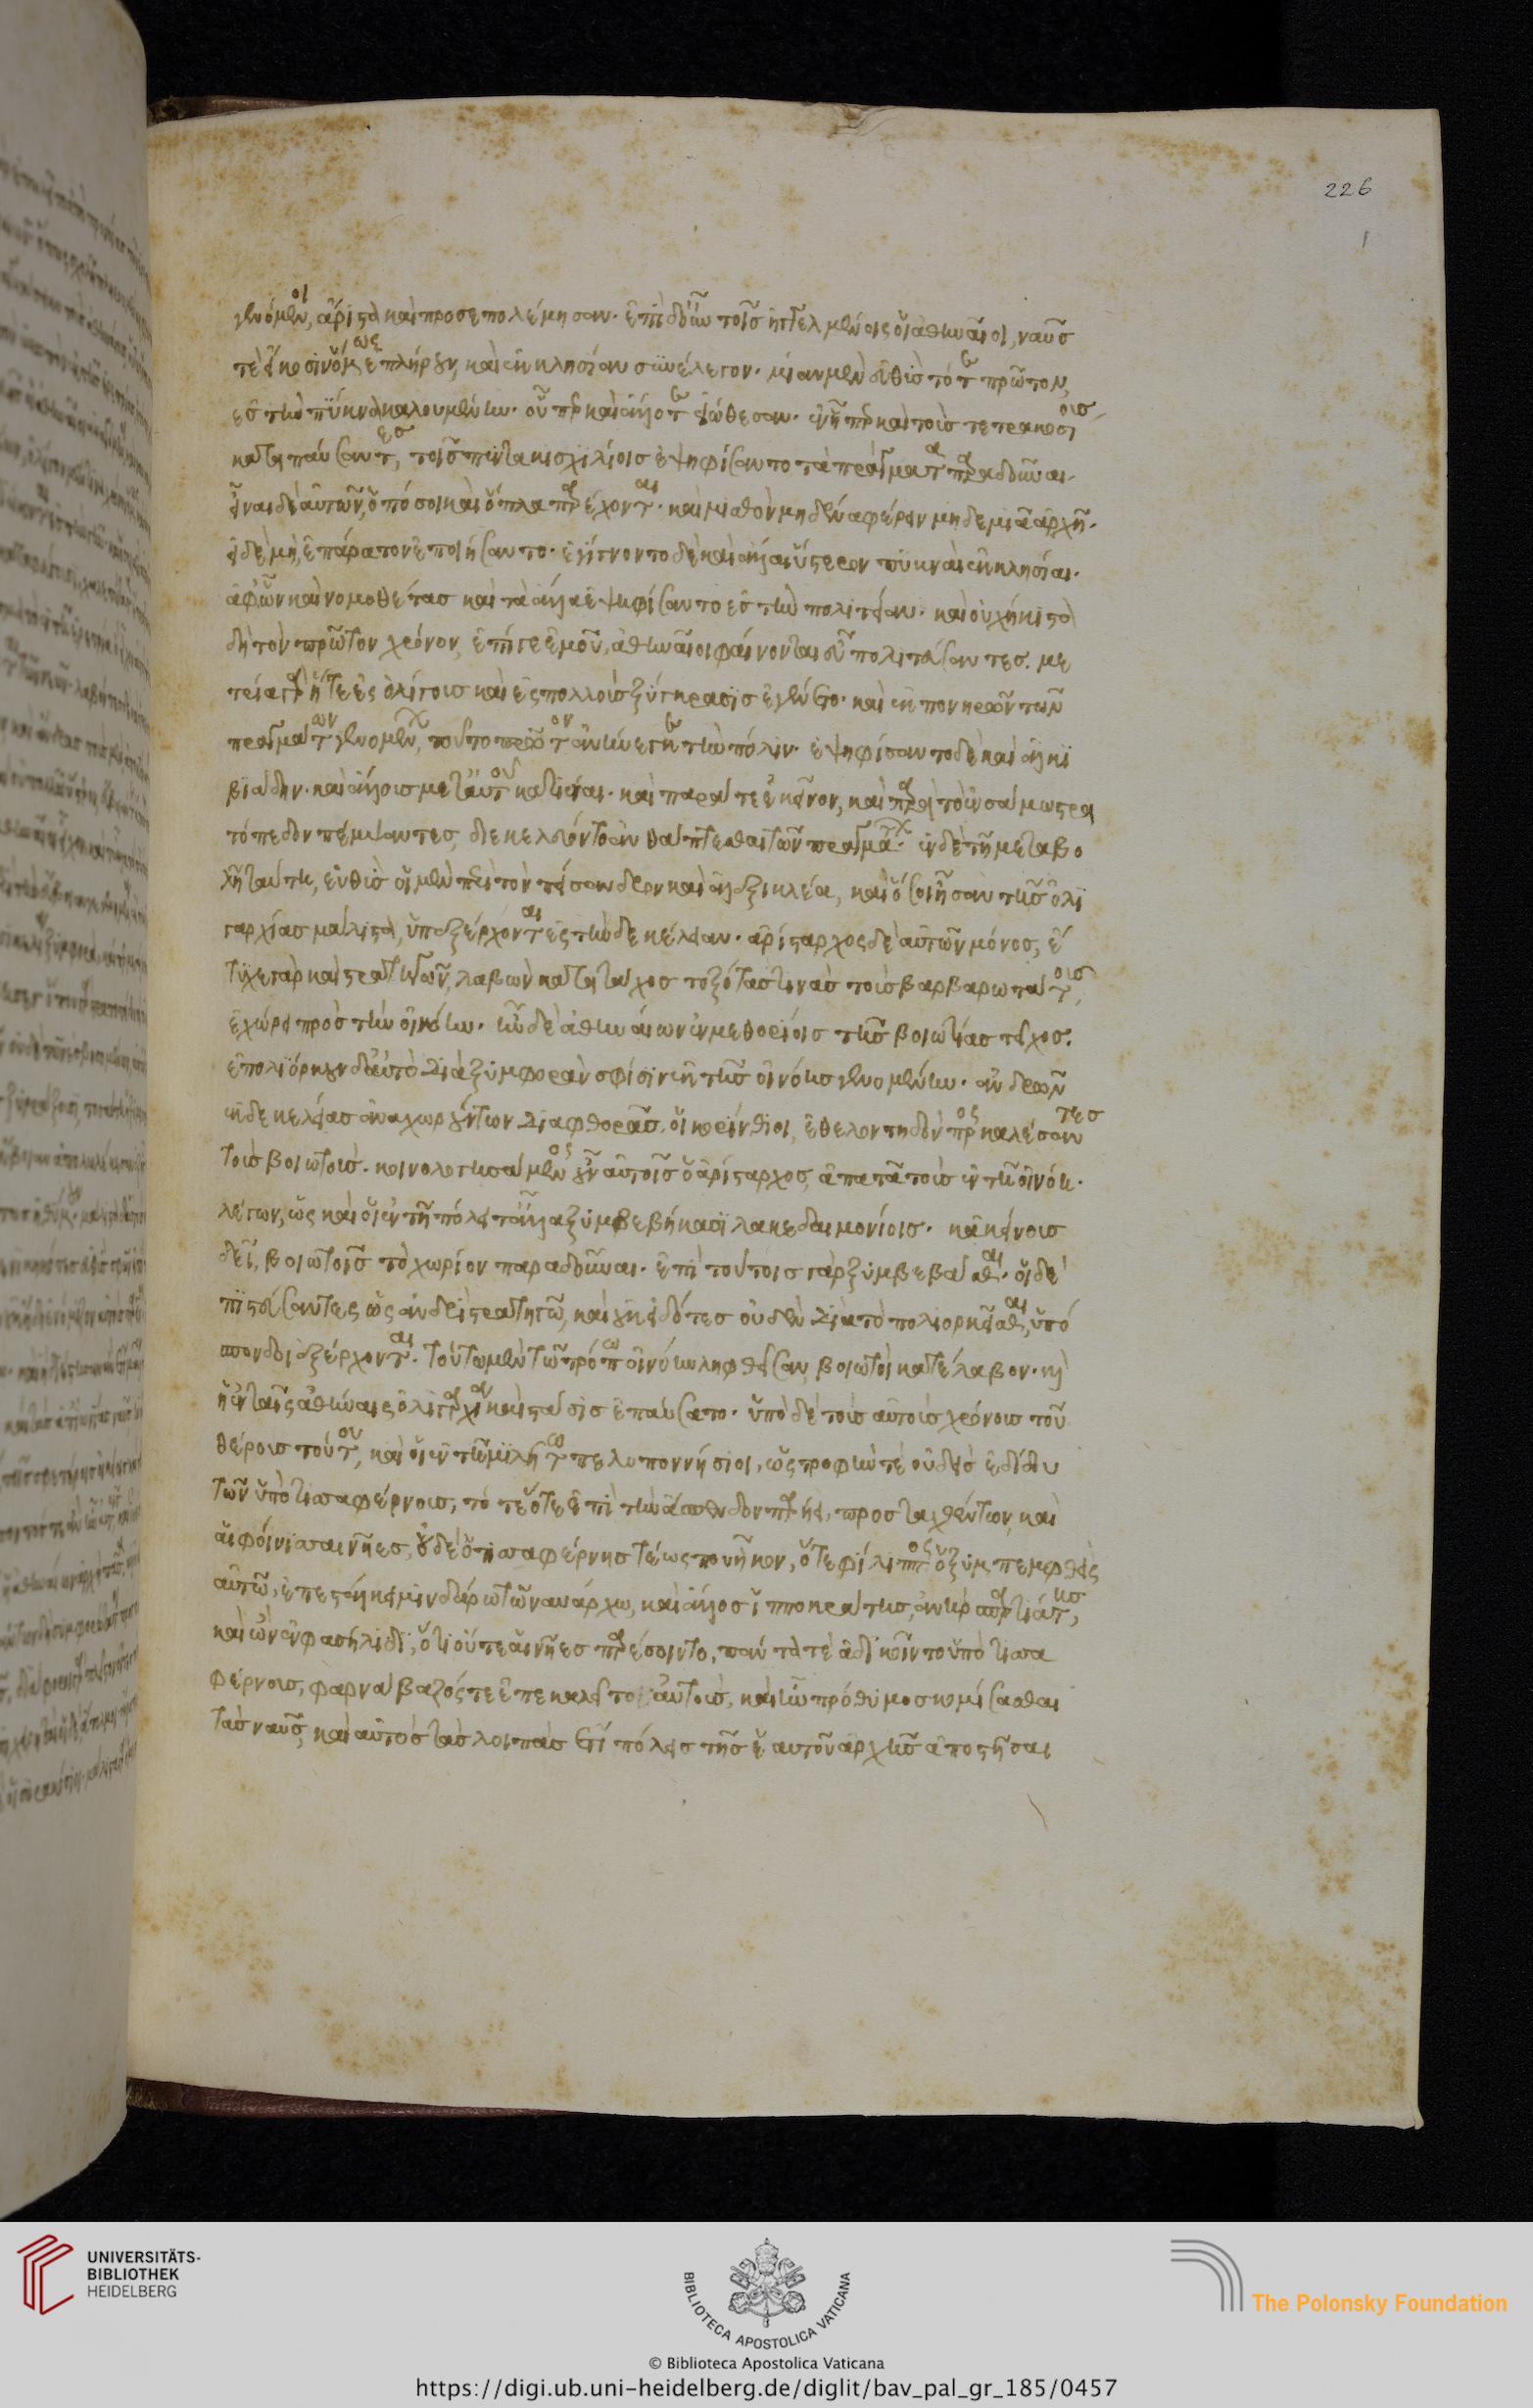 226
γενόμενοι, ἄριστα καὶ προσεπολέμησαν. ἐπὶ δ' οὖν τοῖς ἠγγελμένοις οἱ ἀθηναῖοι, ναῦς
τὲ εἴκοσιν ὅμως ἐπλήρουν, καὶ ἐκκλησίαν συνέλεγον. μίαν μὲν εὐθὺς τότε πρῶτον,
ἐς τὴν πύκνα καλουμένην. οὗπερ καὶ ἄλλοτε εἰώθεσαν. ἐν ᾗπερ καὶ τοὺς τετρακοσίους
καταπαύσαντες, τοῖς πεντακισχιλίοις ἐψηφίσαντο τὰ πράγματα παραδοῦναι.
εἶναι δὲ αὐτῶν, ὁπόσοι καὶ ὅπλα παρέχονται. καὶ μισθὸν μηδένα φέρειν μηδεμιᾷ ἀρχῇ.
εἰ δὲ μὴ, ἐπάρατον ἐποιήσαντο. ἐγίγνοντο δὲ καὶ ἄλλαι ὕστερον πυκναὶ ἐκκλησίαι.
ἀφ' ὧν καὶ νομοθέτας καὶ τὰ ἄλλα ἐψηφίσαντο ἐς τὴν πολιτείαν. καὶ οὐχ ἥκιστα
δὴ τὸν πρῶτον χρόνον, ἐπί γε ἐμοῦ, ἀθηναῖοι φαίνονται εὖ πολιτεύσαντες. με
τρία γὰρ ἥ τε ἐς ὀλίγους καὶ ἐς πολλοὺς ξύγκρασις ἐγένετο. καὶ ἐκ πονηρῶν τῶν
πραγμάτων γενομένων, τοῦτο πρῶτον ἀνήνεγκε τὴν πόλιν. ἐψηφίσαντο δὲ καὶ ἀλκι
βιάδην. καὶ ἄλλους μετ' αὐτοῦ κατιέναι. καὶ παρά τε ἐκεῖνον, καὶ παρὰ τὸ ἐν σάμω στρα
τόπεδον πέμψαντες, διεκελεύοντο ἀνθάπτεσθαι τῶν πραγμάτων. ἐν δὲ τῇ μεταβο
λῇ ταύτη, εὐθὺς οἱ μὲν περὶ τὸν πείσανδρον καὶ ἀλεξικλέα, καὶ ὅσοι ἦσαν τῆς ὀλι
γαρχίας μάλιστα, ὑπεξέρχονται ἐς τὴν δεκέλειαν. ἀρίσταρχος δὲ αὐτῶν μόνος, ἔ
τυχε γὰρ καὶ στρατηγῶν, λαβὼν κατὰ τάχος τοξότας τινὰς τοὺς βαρβαρωτάτους,
ἐχώρει πρὸς τὴν οἰνόην. ἦν δὲ ἀθηναίων ἐν μεθορίοις τῆς βοιωτίας τεῖχος.
ἐπολιόρκουν δ' αὐτὸ διὰ ξυμφορὰν σφίσιν ἐκ τῆς οἰνόης γενομένην. ἀνδρῶν
ἐκ δεκελείας ἀναχωρούντων διαφθορᾶς, οἱ κορίνθιοι, ἐθελοντηδὸν προσκαλέσαντες
τοὺς βοιωτούς. κοινολογησάμενος οὖν αὐτοῖς ὁ ἀρίσταρχος, ἀπατᾷ τοὺς ἐν τῇ οἰνόη.
λέγων, ὡς καὶ οἱ ἐν τῇ πόλει τἄλλα ξυμβεβήκασι λακεδαιμονίοις. κἀκείνους
δεῖ, βοιωτοῖς τὸ χωρίον παραδοῦναι. ἐπὶ τούτοις γὰρ ξυμβεβάσθαι. οἱ δὲ
πιστεύσαντες ὡς ἀνδρὶ στρατηγῶ, καὶ οὐκ εἰδότες οὐδὲν διὰ τὸ πολιορκεῖσθαι, ὑπό
σπονδοι ἐξέρχονται. τούτω μὲν τῶ τρόπω οἰνόην ληφθεῖσαν, βοιωτοὶ κατέλαβον. καὶ
ἡ ἐν ταῖς ἀθήναις ὀλιγαρχία καὶ στάσις ἐπαύσατο. ὑπὸ δὲ τοὺς αὐτοὺς χρόνους τοῦ
θέρους τούτου, καὶ οἱ ἐν τῆ μιλήτω πελοποννήσιοι, ὡς τροφήν τε οὐδεὶς ἐδίδου
τῶν ὑπὸ τισσαφέρνους, τότε ὅτε ἐπὶ τὴν ἄσπενδον παρήει, προσταχθέντων, καὶ
αἱ φοίνισσαι νῆες, οὐδὲ ὁ τισσαφέρνης τέως που ἧκον, ὅ τε φίλιππος ὁ ξυμπεμφθεὶς
αὐτῶ, ἐπεστάλκει μινδάρω τῶ ναυάρχω, καὶ ἄλλος ἱπποκράτης, ἀνὴρ σπαρτιάτης,
καὶ ὢν ἐν φασήλιδι, ὅτι οὔτε αἱ νῆες παρέσοιντο, πάντα τε ἀδικοῖντο ὑπὸ τισσα
φέρνους, φαρνάβαζός τε ἐπεκαλεῖτο αὐτούς, καὶ ἦν πρόθυμος κομίσασθαι
τὰς ναῦς, καὶ αὐτὸς τὰς λοιπὰς ἔτι πόλεις τῆς ἑαυτοῦ ἀρχῆς ἀποστῆσαι
UNIVERSITÄTS-
BIBLIOTHEK
HEIDELBERG
BIBLIOTECA APOSTOLICA VATICANA
The Polonsky Foundation
© Biblioteca Apostolica Vaticana
https://digi.ub.uni-heidelberg.de/diglit/bav_pal_gr_185/0457